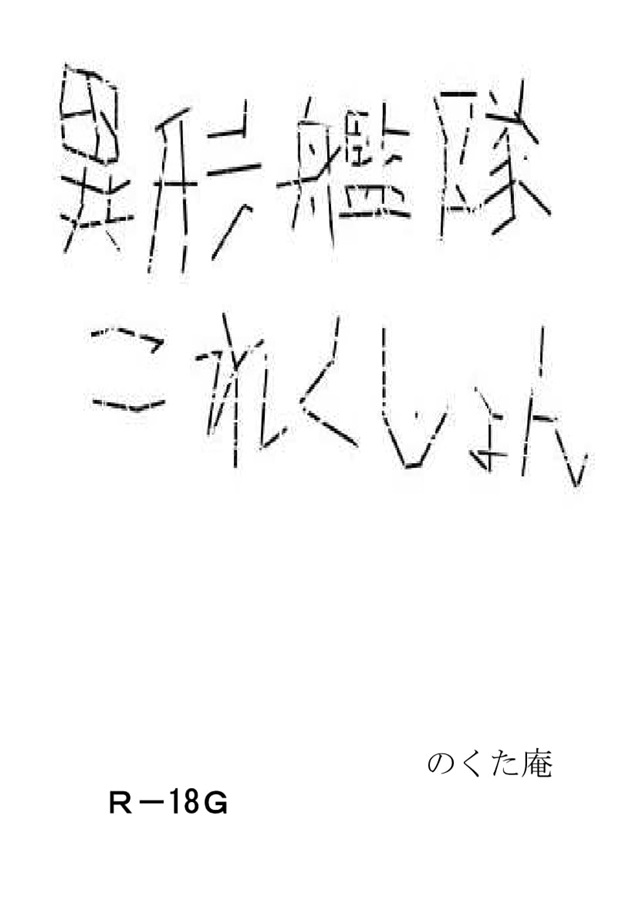 異形艦隊
これくしょん
のくた庵
R－18G